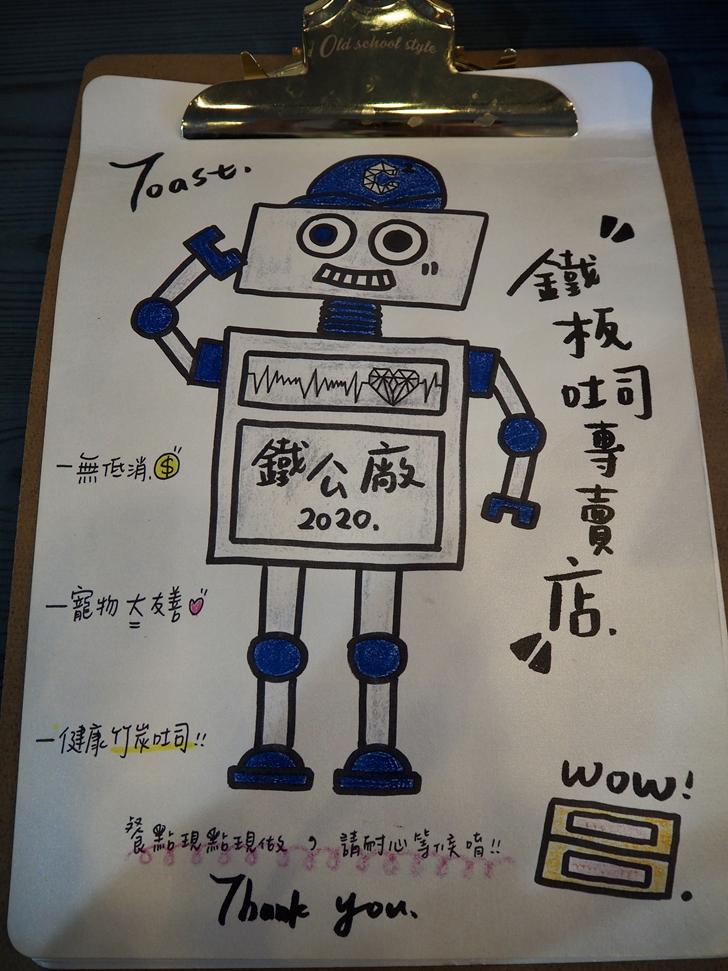 Old school style
Toast.
"鐵板吐司專賣店."
鐵公廠
2020.
-無低消.$
-寵物大友善
-健康竹炭吐司!!
WOW!
餐點現點現做，請耐心等候唷!!
Thank you.